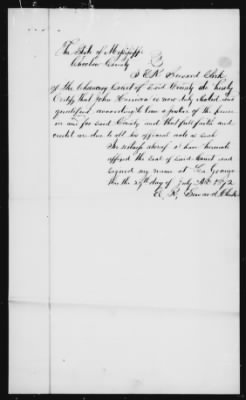 The State of Mississippi
Choctaw County
I E. R. Seward Clerk
of the Chancery Court of said County do hereby
Certify that John is now duly elected and
qualified according to law a Justice of the peace
in and for said County and that full faith and
credit are due to all his official acts as such
In witness whereof I have hereunto
affixed the seal of said Court and
signed my name at La Grange
this the 29th day of July AD. 1872
E. R. Seward Clerk